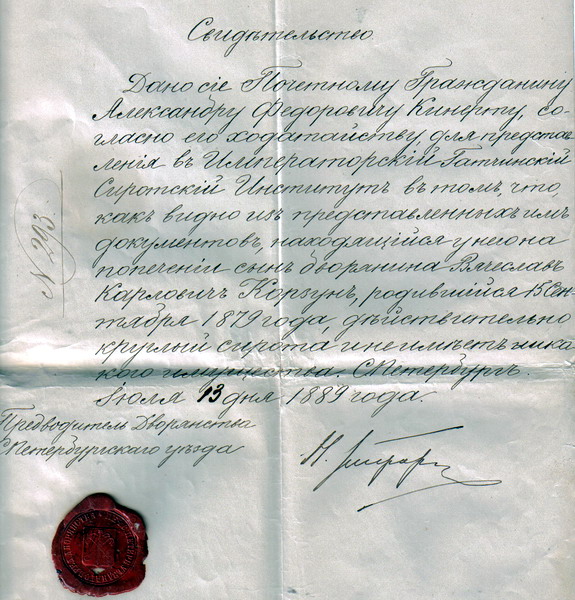 Свидѣтельство
Дано сіе Почетному Гражданину
Александру Федоровичу Кинерту, со-
гласно его ходатайству, для представ-
ленія въ Императорскій Гатчинскій
Сиротскій Институтъ въ томъ, что,
какъ видно изъ представленныхъ имъ
документовъ, находящійся у него на
попеченіи сынъ дворянина Вячеславъ
Карловичъ Корзунъ, родившійся 15 Сен-
тября 1879 года, дѣйствительно
круглый сирота и не имѣетъ ника-
кого имущества. С.Петербургъ.
Іюля 13 дня 1889 года.
Предводитель Дворянства
С.Петербургскаго уѣзда
№